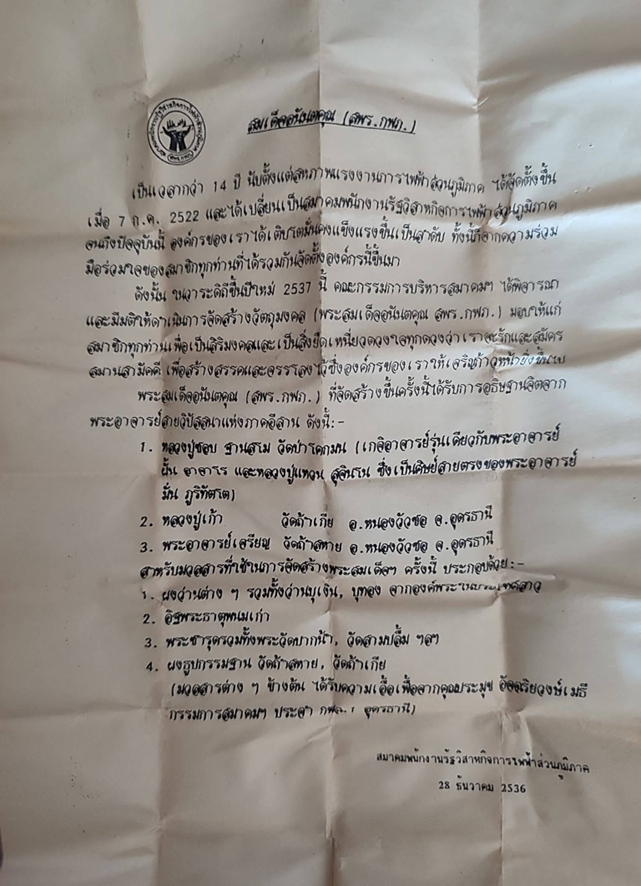 สมเด็จอนันตคุณ (สพร.กฟภ.)
เป็นเวลากว่า 14 ปี นับตั้งแต่สหภาพแรงงานการไฟฟ้าส่วนภูมิภาค ได้จัดตั้งขึ้น
เมื่อ 7 ก.ค. 2522 และได้เปลี่ยนเป็นสมาคมพนักงานรัฐวิสาหกิจการไฟฟ้าส่วนภูมิภาค
จนถึงปัจจุบันนี้ องค์กรของเราได้เติบโตมั่นคงแข็งแรงขึ้นเป็นลำดับ ทั้งนี้ก็จากความร่วม
มือร่วมใจของสมาชิกทุกท่านที่ได้รวมกันจัดตั้งองค์กรนี้ขึ้นมา
ดังนั้น ในวาระดิถีขึ้นปีใหม่ 2537 นี้ คณะกรรมการบริหารสมาคมฯ ได้พิจารณา
และมีมติให้ดำเนินการจัดสร้างวัตถุมงคล (พระสมเด็จอนันตคุณ สพร.กฟภ.) มอบให้แก่
สมาชิกทุกท่านเพื่อเป็นสิริมงคลและเป็นสิ่งยึดเหนี่ยวดวงใจทุกดวงว่าเราจะรักและสมัคร
สมานสามัคคี เพื่อสร้างสรรค์และจรรโลงไว้ซึ่งองค์กรของเราให้เจริญก้าวหน้ายิ่งขึ้นไป
พระสมเด็จอนันตคุณ (สพร.กฟภ.) ที่จัดสร้างขึ้นครั้งนี้ได้รับการอธิษฐานจิตจาก
พระอาจารย์สายวิปัสสนาแห่งภาคอีสาน ดังนี้:-
1. หลวงปู่ชอบ ฐานสโม วัดป่าโคกมน (เกจิอาจารย์รุ่นเดียวกับพระอาจารย์
ฝั้น อาจาโร และหลวงปู่แหวน สุจินโน ซึ่งเป็นศิษย์สายตรงของพระอาจารย์
มั่น ภูริทัตโต)
2. หลวงปู่เก้า วัดถ้ำเกีย อ.หนองวัวซอ จ.อุดรธานี
3. พระอาจารย์เจริญ วัดถ้ำสหาย อ.หนองวัวซอ จ.อุดรธานี
สำหรับมวลสารที่ใช้ในการจัดสร้างพระสมเด็จฯ ครั้งนี้ ประกอบด้วย:-
1. ผงว่านต่าง ๆ รวมทั้งว่านบุเงิน, บุทอง จากองค์พระในประเทศลาว
2. อิฐพระธาตุพนมเก่า
3. พระชำรุดรวมทั้งพระวัดปากน้ำ, วัดสามปลื้ม ฯลฯ
4. ผงธูปกรรมฐาน วัดถ้ำสหาย, วัดถ้ำเกีย
(มวลสารต่าง ๆ ข้างต้น ได้รับความเอื้อเฟื้อจากคุณประมุข อัจฉริยวงษ์เมธี
กรรมการสมาคมฯ ประจำ อุดรธานี)
สมาคมพนักงานรัฐวิสาหกิจการไฟฟ้าส่วนภูมิภาค
28 ธันวาคม 2536